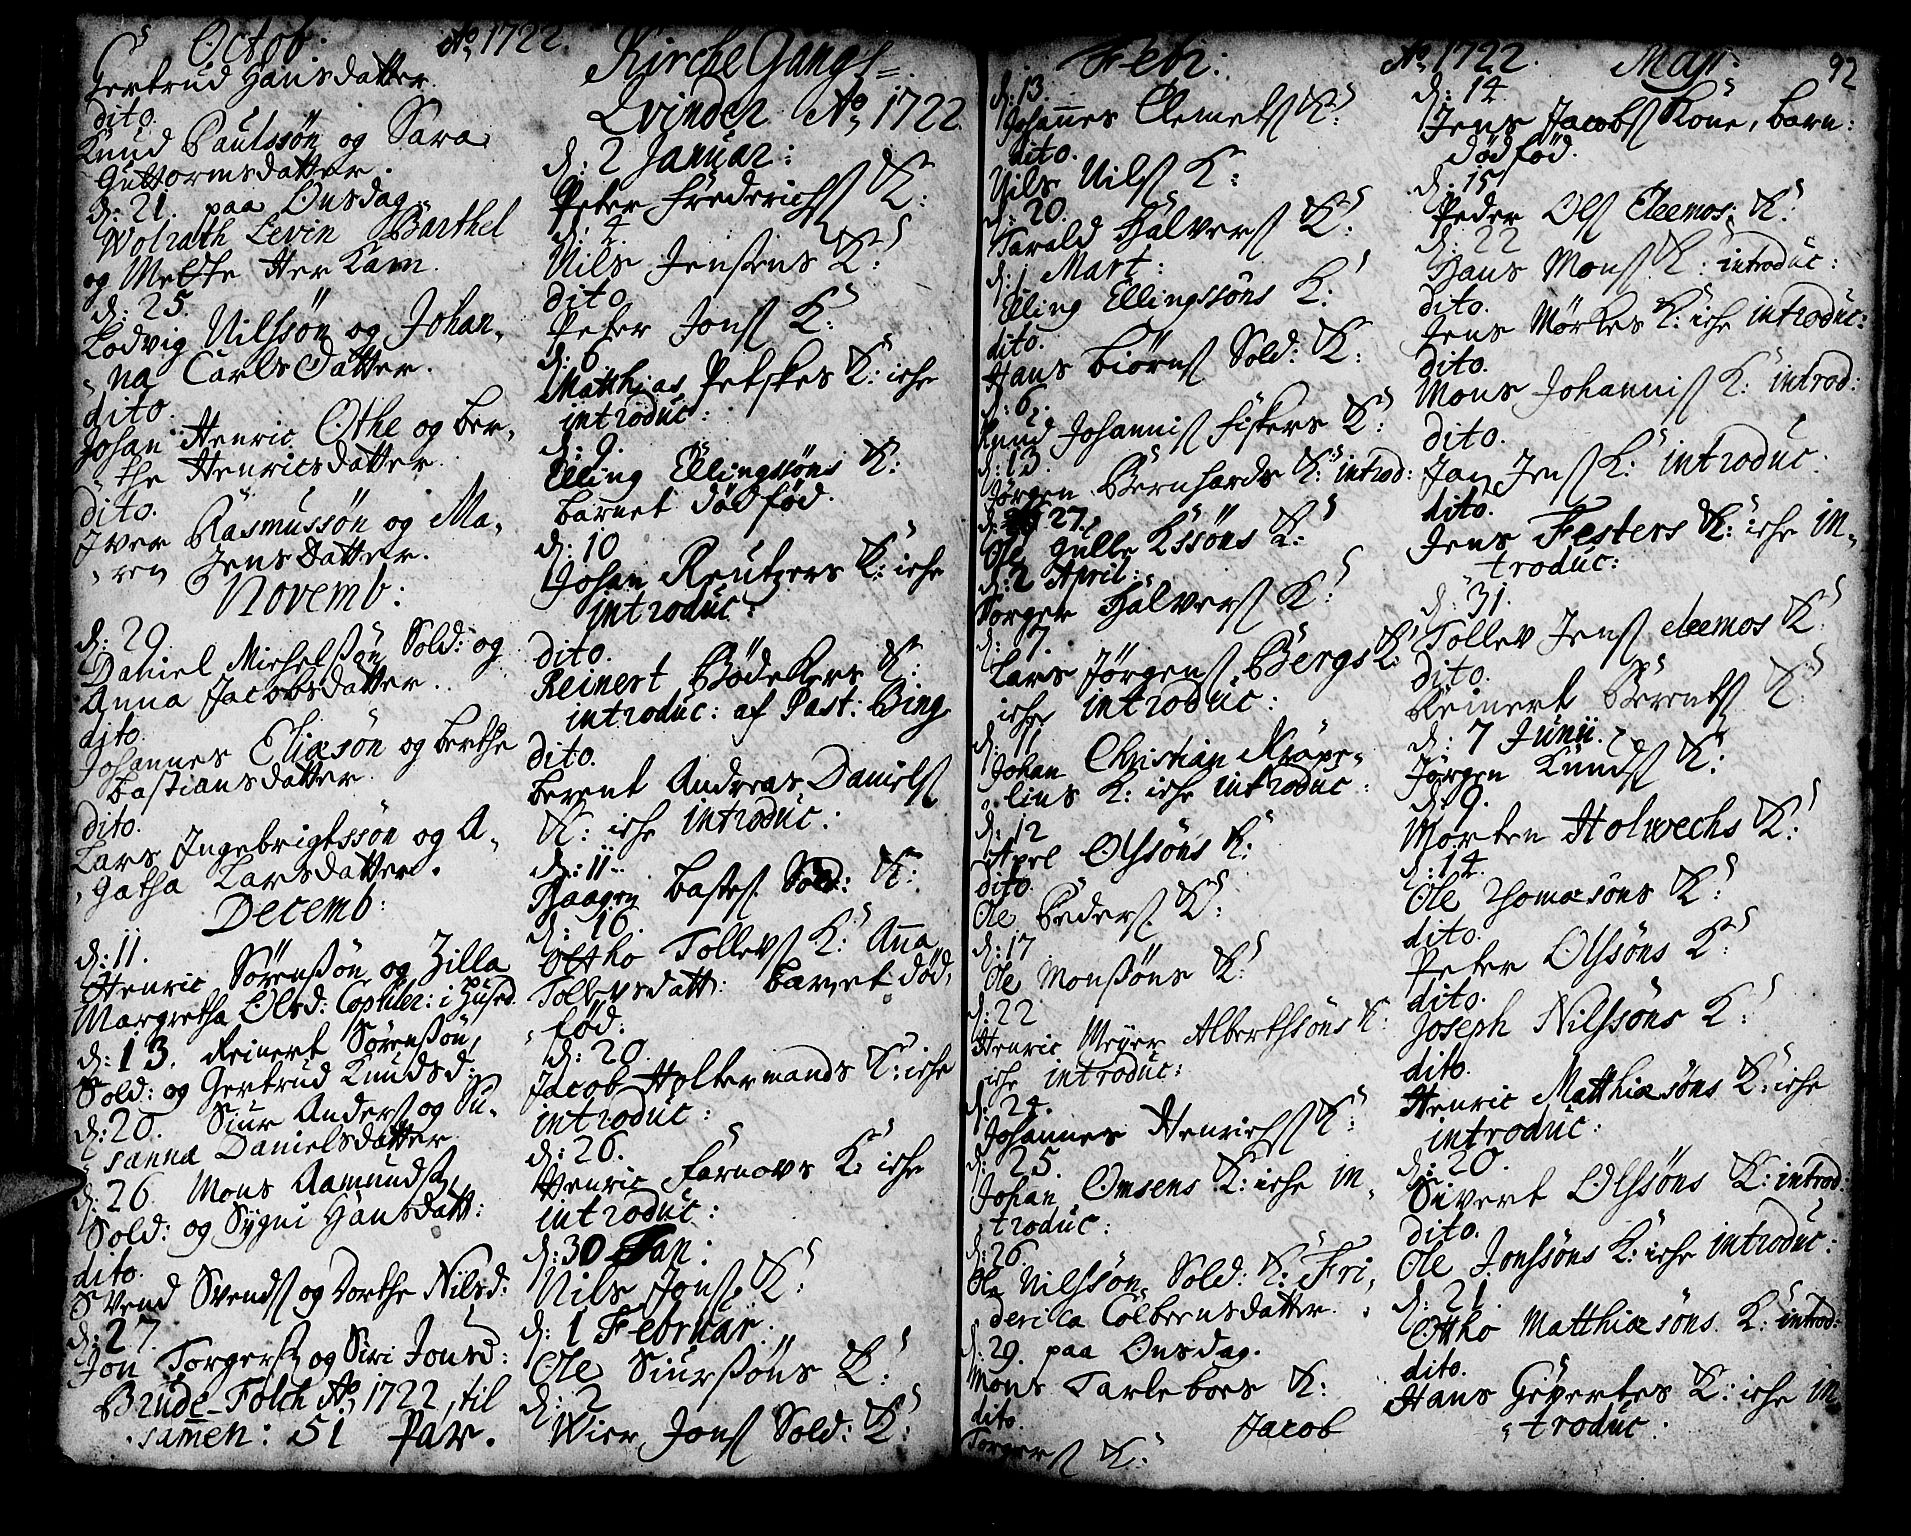 Octob: Ao 1722.
Gertrud Hansdatter.
dito.
Knud Paulssøn og Sara
Guttormsdatter.
d: 21. paa Onsdag.
Wolrath Levin Barthel
og Mette Her Kam.
d: 25.
Lodvig Nilssøn og Johan„
„na Carls Datter.
dito.
Johan Henric Othe og Ber„
„the Henricsdatter.
dito.
Iver Rasmussøn og Ma„
„ren Jens Datter.
Novemb:
d: 29.
Daniel Michelssøn Sold: og
Anna Jacobsdatter.
dito.
Johannes Eliæsøn og Berthe
Bastiansdatter.
dito.
Lars Ingebrigtssøn og A„
„gatha Larsdatter.
Decemb:
d: 11.
Henric Sörenssøn og Zilla
Margretha Olsd: Copuler: i Huset.
d: 13. Reinert Sörenssøn,
Sold: og Gertrud Knudsd:
d: 20. Siur Anders og Su„
„sanna Danielsdatter.
d: 26. Mons Aamunds,
Sold: og Sygni Hansdatt:
dito.
Svend Svends og Dorthe Nilsd:
d: 27.
Jon Torgers og Siri Jonsd:
Brude-Folck Ao 1722, til
samen: 51 Par.
Kirche Gangs=
Qvinder Ao 1722.
d: 2 Januar:
Peter Frederichs K:
d: 4.
Nils Jensens K:
dito
Peter Jons K:
d: 6
Matthias Petskes K: iche
introduc:
d: 9.
Elling Ellingssøns K:
barnet död föd.
d: 10
Johan Reutzers K: iche
introduc:
dito.
Reinert Bödekers K:
introduc: af Past: Bing
dito.
Berent Andreas Daniels
K: iche introduc:
d: 11.
Haagen Bastes Sold: K:
d: 16.
Ottho Tollevs K: Anna
Tollevsdatt: barnet död„
„föd.
d: 20.
Jacob Holtermands K: iche
introduc:
d: 26.
Henric Farnovs K: iche
introduc:
d: 30 Jan:
Nils Jons K:
d: 1 Februar:
Ole Siurssøns K:
d: 2
Wier Jons Sold: K:
Febr: Ao 1722.
d: 13.
Johannes Clemets K:
dito.
Nils Nils K:
d: 20.
Tarald Halvers K:
d: 1 Mart:
Elling Ellingssøns K:
dito.
Hans Biörns Sold: K:
d: 6.
Knud Johannis Fiskers K:
d: 13.
Jørgen Bernhards K: introd:
d: 27.
Ole Gulleikssøns K:
d: 2 April:
Torger Halvers K:
d: 7.
Lars Jørgens Bergs K:
iche introduc:
d: 11
Johan Christian Kröpe„
„lins K: iche introduc:
d: 12
Axel Olssøns K:
dito.
Ole Peders K:
d: 17
Ole Monssøns K:
d: 22
Henric Meyer Albertssøns K:
iche introduc:
d: 24.
Johannes Henrichs K:
d: 25.
Johan Omsens K: iche in„
„troduc:
d: 26.
Ole Nilssøn Sold: K: Fri„
dericka Colbernsdatter.
d: 29. paa Onsdag.
Mons Tarleboes K:
dito.
Jacob
Torgers K:
Maji: 92
d: 14.
Jens Jacobs Kone, barn:
död föd.
d: 15
Peder Ols Eleemos: K:
d: 22
Hans Mons K: introduc:
dito.
Jens Mörkes K: iche introduc:
dito.
Mons Johannis K: introd:
dito.
Jan Jens K: introduc:
dito.
Jens Festers K: iche in„
troduc:
d: 31.
Tollev Jens eleemos K:
dito.
Reinert Berents K:
d: 7 Junii.
Jørgen Knuds K:
d: 9.
Morten Holwechs K:
d: 14.
Ole Thomæsøns K:
dito.
Peter Olssøns K:
dito.
Joseph Nilssøns K:
dito.
Henric Matthiæsøns K: iche
introduc:
d: 20.
Sivert Olssøns K: introd:
dito.
Ole Jonssøns K: iche introduc:
d: 21.
Ottho Matthiæsøns K: introd:
dito.
Hans Gevertes K: iche in„
„troduc: